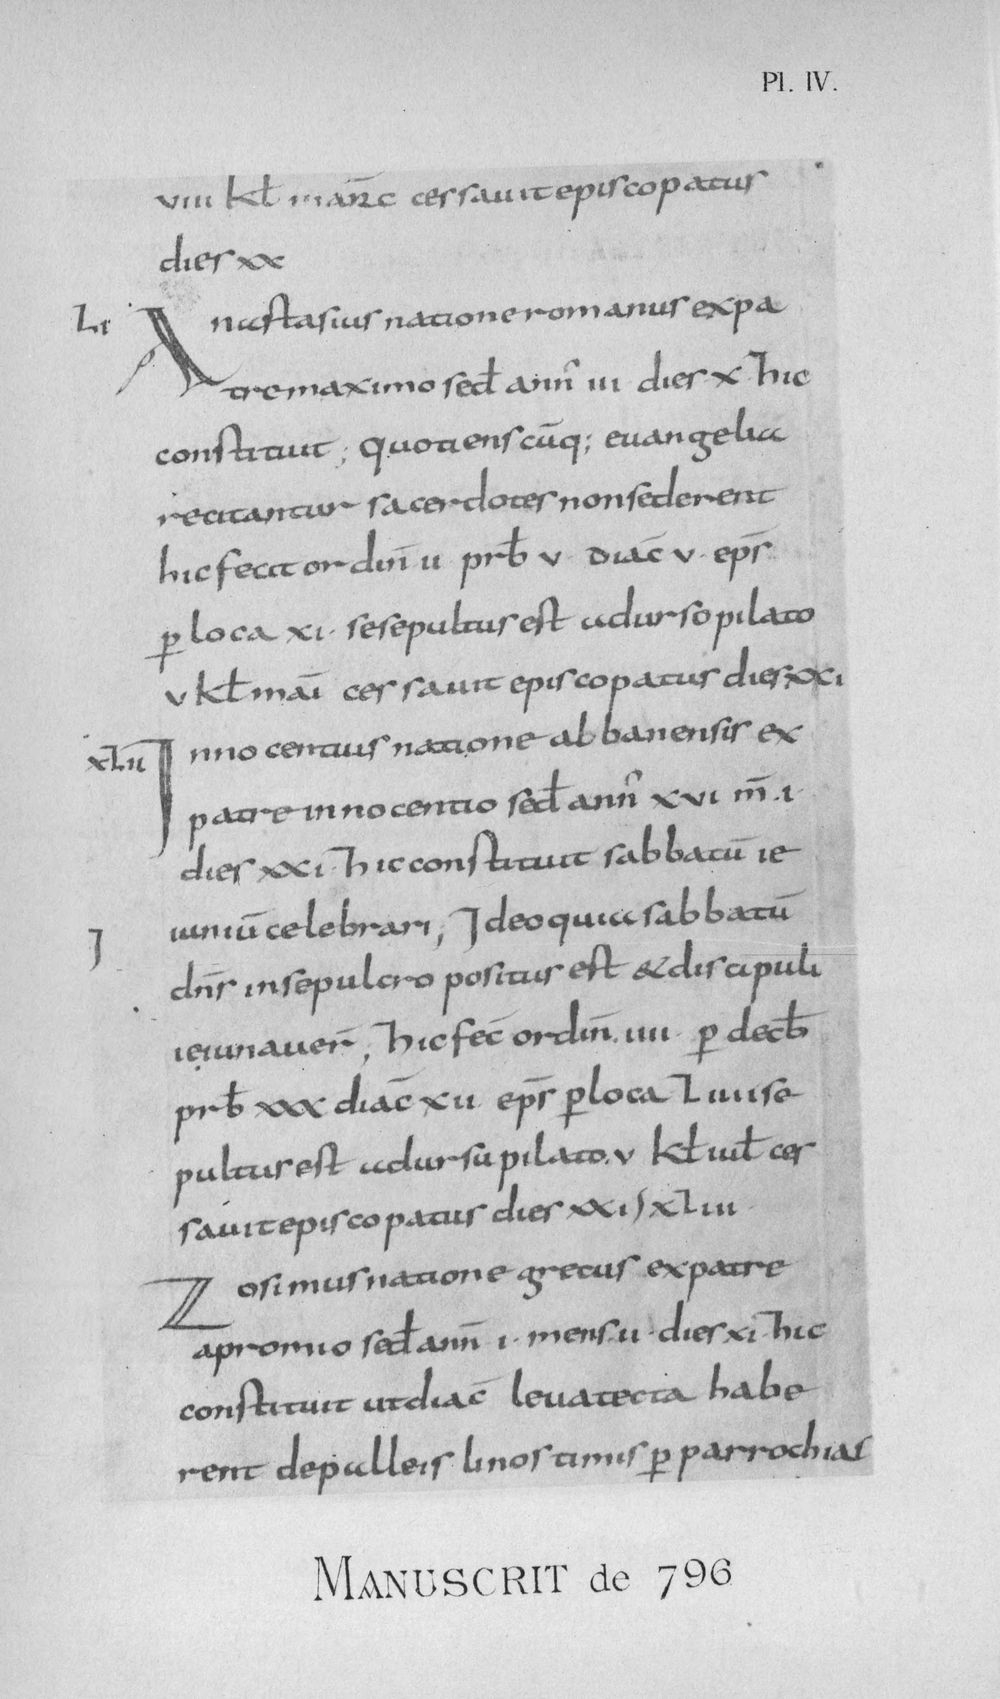 Pl. IV.
viii kł marc cessavit episcopatus
dies xx
Li Anastasius natione romanus ex pa
tre maximo sed ann iii dies x hic
constituit; Quotienscūq; evangelia
recitantur sacerdotes non sederent
hic fecit ordin̄ ii prb v diac̄ v ep̄s
p loca xi se sepultus est ad urso pilato
v kł mai cessavit episcopatus dies xxi
xLii Innocentius natione abbanensis ex
patre innocentio sed ann xvi m̄ i
dies xxi hic constituit sabbatū ie
iuniū celebrari; Ideo quia sabbatū
dn̄s in sepulcro positus est & discipuli
ieiunaver̄; hic fec̄ ordin̄ iiii p decb
prb xxx diac̄ xii ep̄s p loca Liiii se
pultus est ad ursū pilato. v kł iuł ces
savit episcopatus dies xxi) xLiii
Zosimus natione grecus ex patre
apromio sed ann̄ i mens ii dies xi hic
constituit ut diac̄ leva tecta habe
rent de palleis linostimis p parrochias
MANUSCRIT de 796